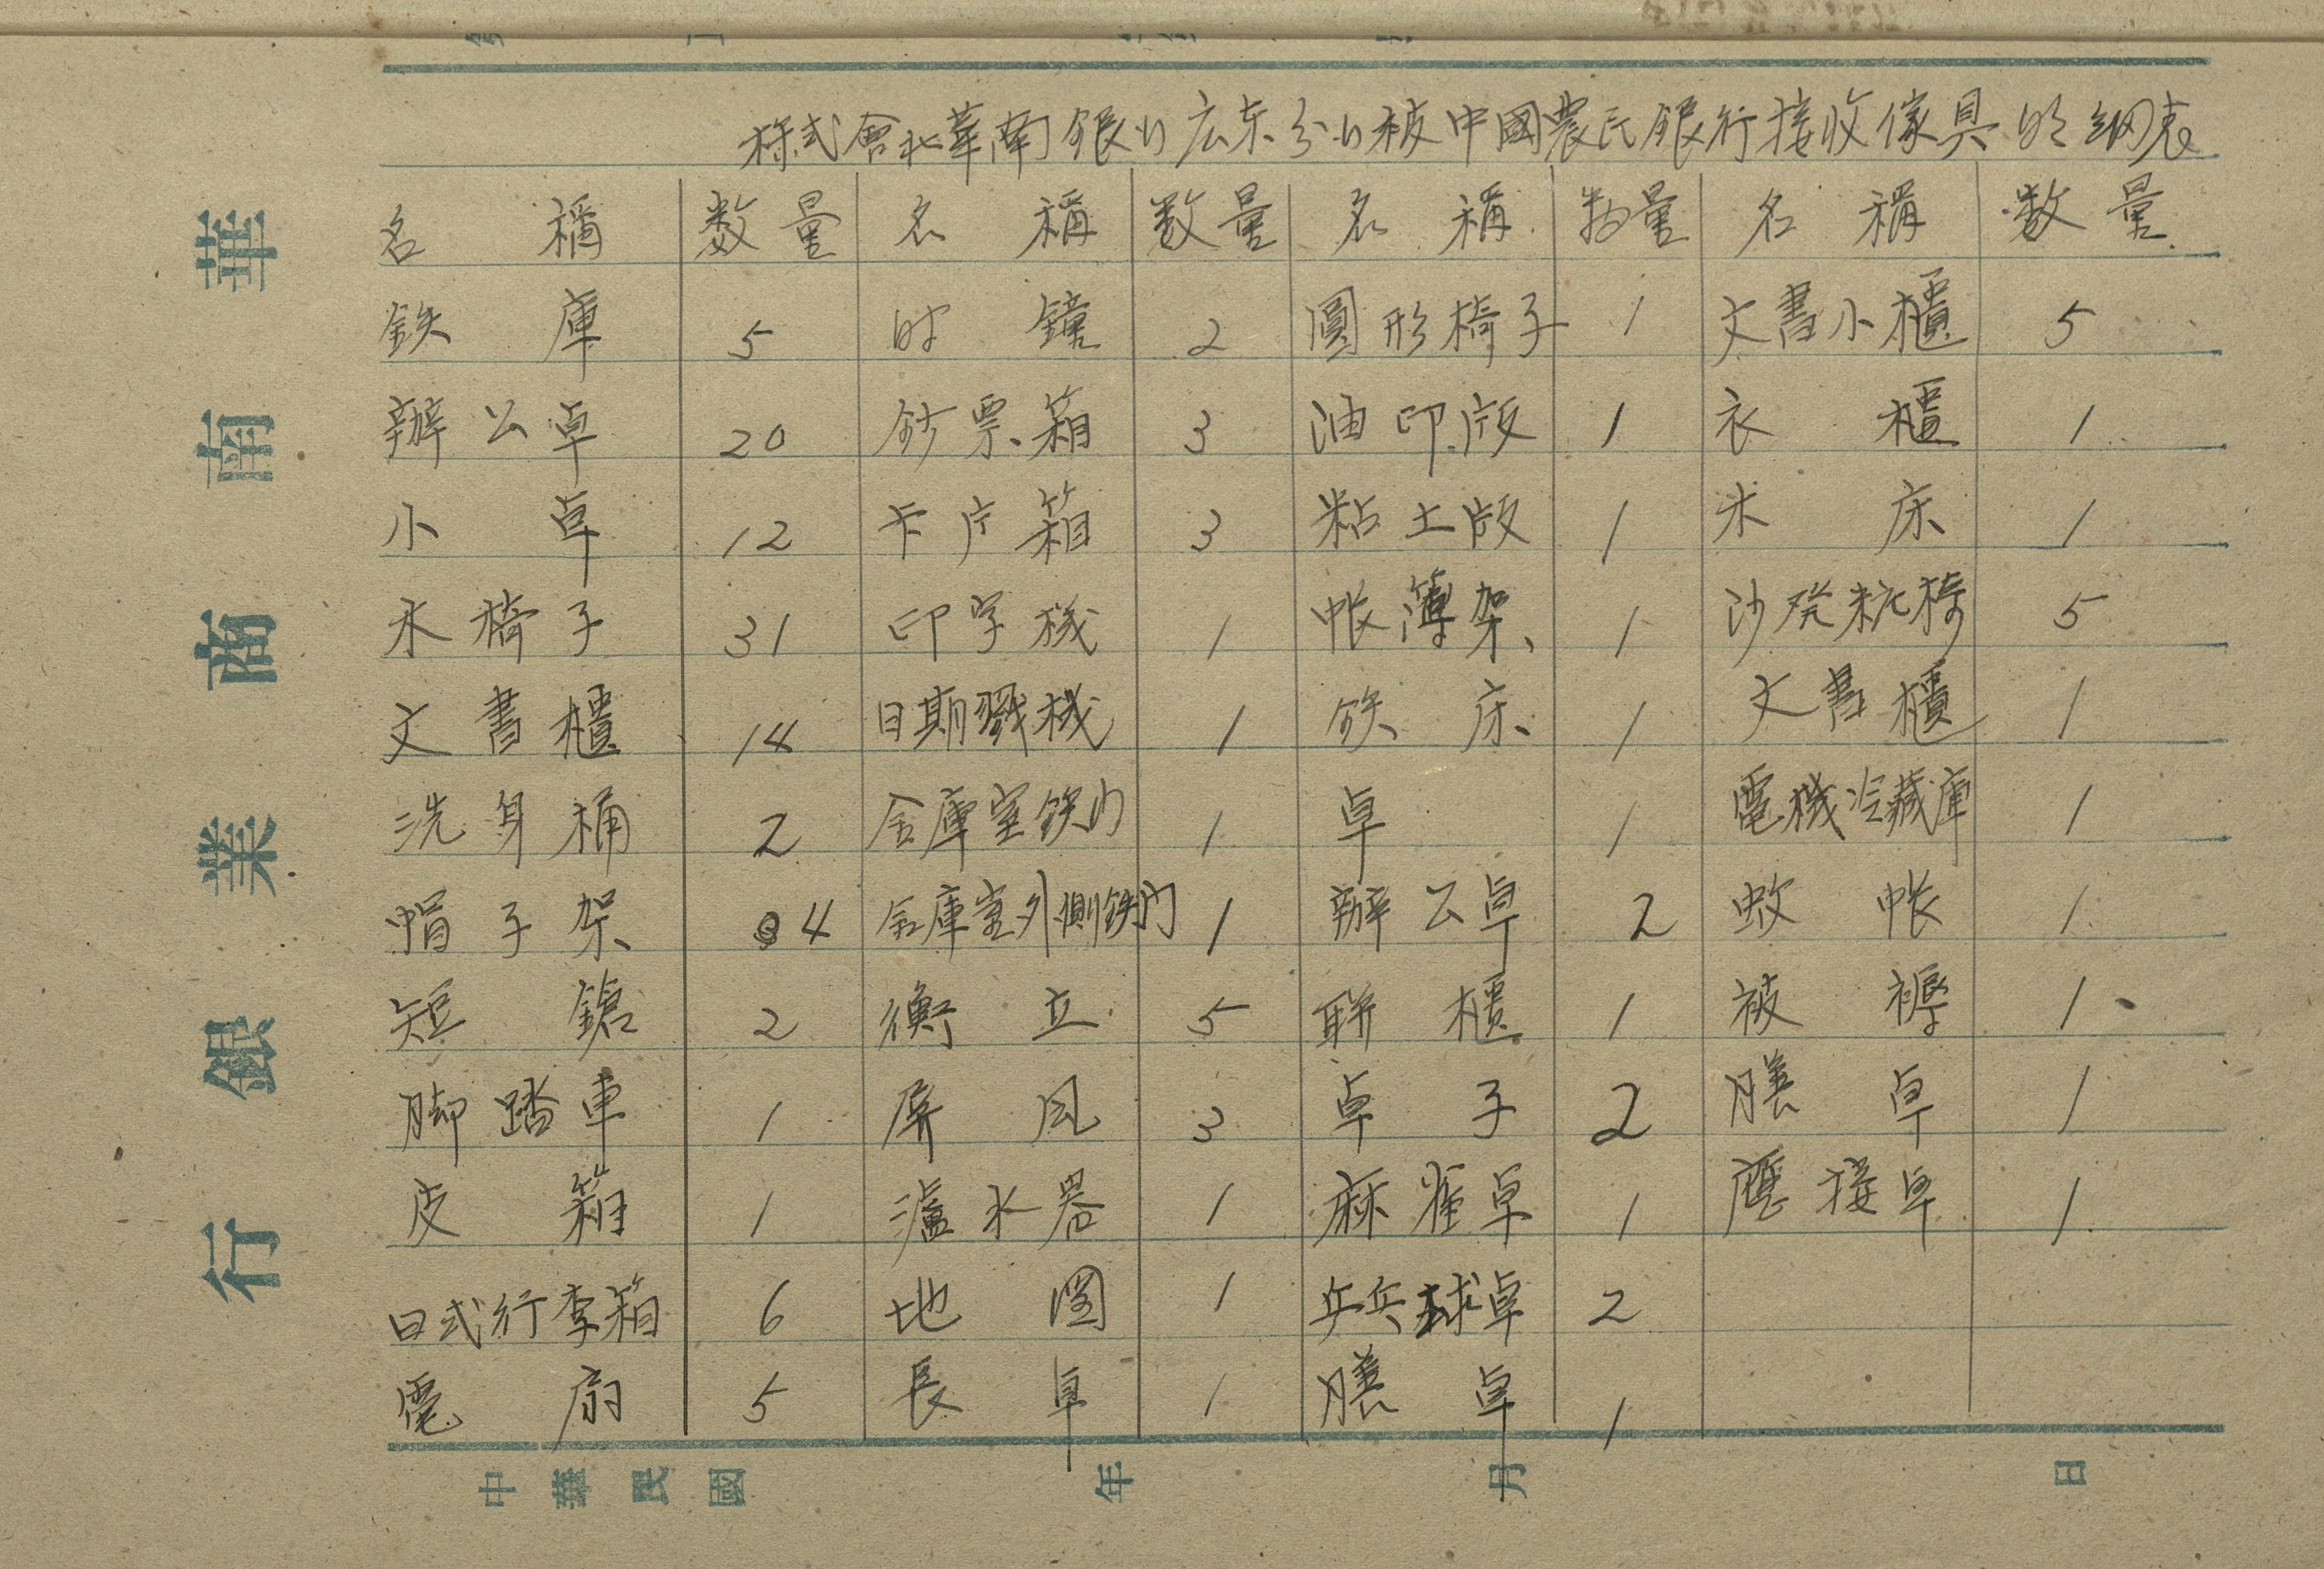 株式會社華南銀行広东分行被中國農民銀行接收傢具明細表
名稱 数量 名稱 数量 名稱 数量 名稱 数量
鉄庫 5 时鐘 2 圓形椅子 1 文書小櫃 5
辦公卓 20 鈔票箱 3 油印版 1 衣櫃 1
小卓 12 卡片箱 3 粘土版 1 木床 1
木椅子 31 印字機 1 帐簿架 1 沙发梳椅 5
文書櫃 14 日期戮機 1 鉄床 1 文書櫃 1
洗身桶 2 金庫室鉄门 1 卓 1 電機冷藏庫 1
帽子架 4 金庫室外側鉄门 1 辦公卓 2 蚊帐 1
短鎗 2 衡立 5 聯櫃 1 被褥 1
脚踏車 1 屏风 3 卓子 2 膳卓 1
皮箱 1 濾水器 1 麻雀卓 1 應接卓 1
日式行李箱 6 地図 1 乒兵球卓 2
電扇 5 長卓 1 膳卓 1
華南商業銀行
中華民國 年 月 日